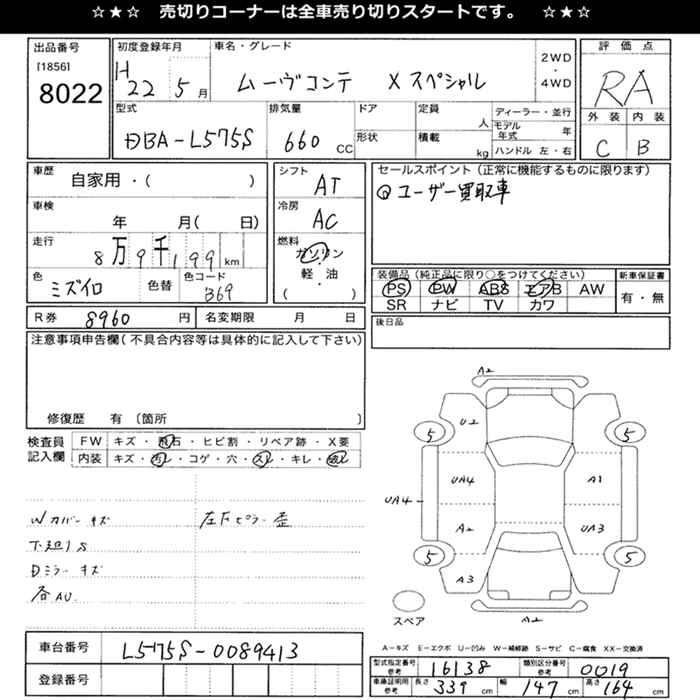 ☆★☆ 売切りコーナーは全車売り切りスタートです。 ☆★☆
出品番号
[1856]
8022
初度登録年月
H22 5 月
車名・グレード
ムーヴコンテ Xスペシャル
2WD
・
4WD
評価点
RA
外装 内装
C B
型式
DBA-L575S
排気量
660 CC
ドア
形状
定員 人
積載 kg
ディーラー・並行
モデル年式 年
ハンドル 左・右
車歴
自家用・( )
車検
年 月( 日)
走行
8万9千199 km
色
ミズイロ
色替
色コード
B69
シフト
AT
冷房
AC
燃料
ガソリン
・
軽・油
( )
セールスポイント(正常に機能するものに限ります)
◎ユーザー買取車
装備品(純正品に限り○をつけてください)
PS PW ABS エアB AW
SR ナビ TV カワ
新車保証書
有・無
R券 8960 円
名変期限 月 日
後日品
注意事項申告欄(不具合内容等は具体的に記入して下さい)
修復歴 有 〔箇所 〕
検査員記入欄
FW キズ・飛石・ヒビ割・リペア跡・X要
内装 キズ・汚レ・コゲ・穴・スレ・キレ・破レ
Wカバーキズ
左FピラーR歪
下廻りS
Dミラーキズ
各AU
A2
U2
5
5
UA4
UA4
A1
A2
UA3
5
5
A3
スペア
A2
A-キズ E-エクボ U-凹み W-補修跡 S-サビ C-腐食 XX-交換済
車台番号
L575S-0089413
登録番号
型式指定番号参考 16138
類別区分番号参考 0019
車庫証明用参考 長さ 339 cm 幅 147 cm 高さ 164 cm